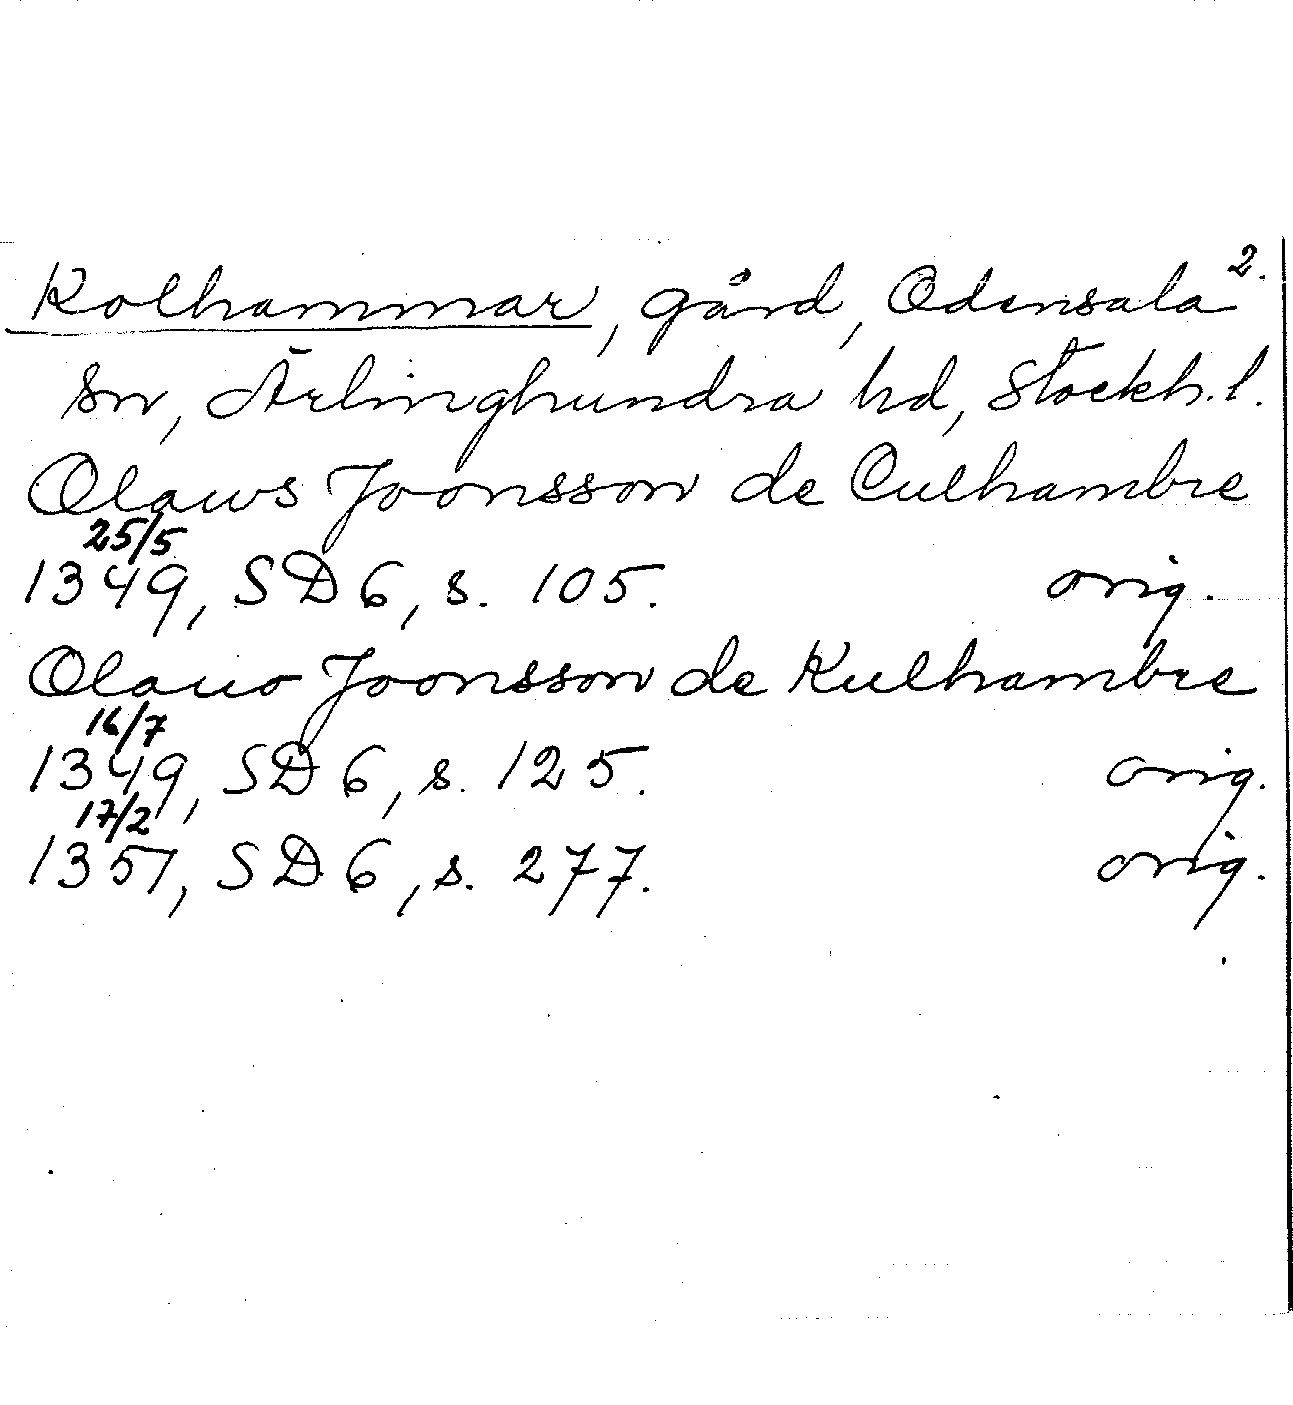 2.
Kolhammar, gård, Odensala
sn, Ärlinghundra hd, Stockh. l.
Olaws Joonsson de Culhambre
25/5
1349, SD 6, s. 105. orig.
Olauo Joonsson de Kulhambre
16/7
1349, SD 6, s. 125. orig.
17/2
1351, SD 6, s. 277. orig.